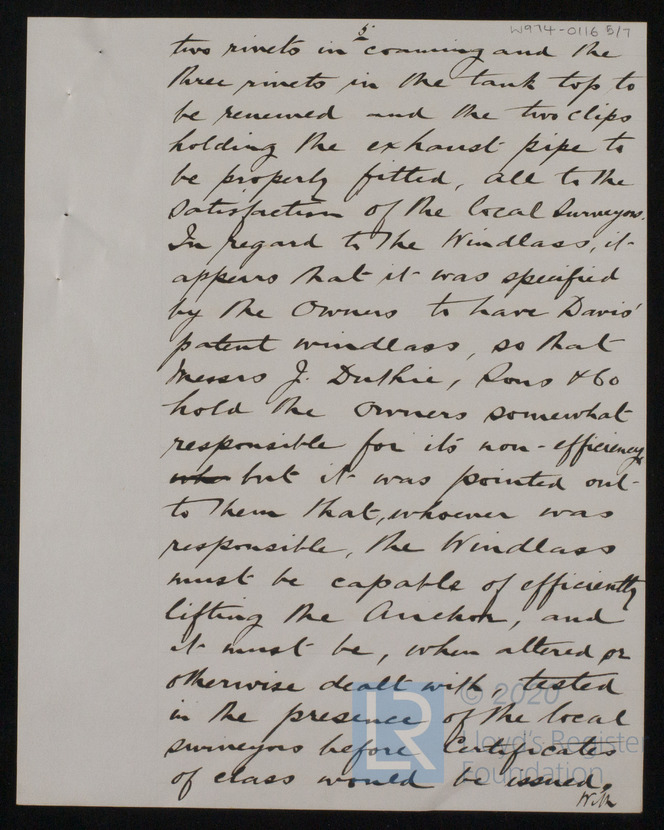 W974-0116 5/7
5
two rivets in coaming and the
three rivets in the tank top to
be renewed and the two clips
holding the exhaust pipe to
be properly fitted, all to the
satisfaction of the local Surveyors.
In regard to the Windlass, it
appears that it was specified
by the Owners to have Davis'
patent windlass, so that
Messrs J. Duthie, Sons & Co
hold the Owners somewhat
responsible for its non-efficiency
but it was pointed out
to them that, whoever was
responsible, the Windlass
must be capable of efficiently
lifting the Anchor, and
it must be, when altered or
otherwise dealt with, tested
in the presence of the local
surveyors before Certificates
of class would be issued.
With
© 2020
Lloyd's Register
Foundation
LR